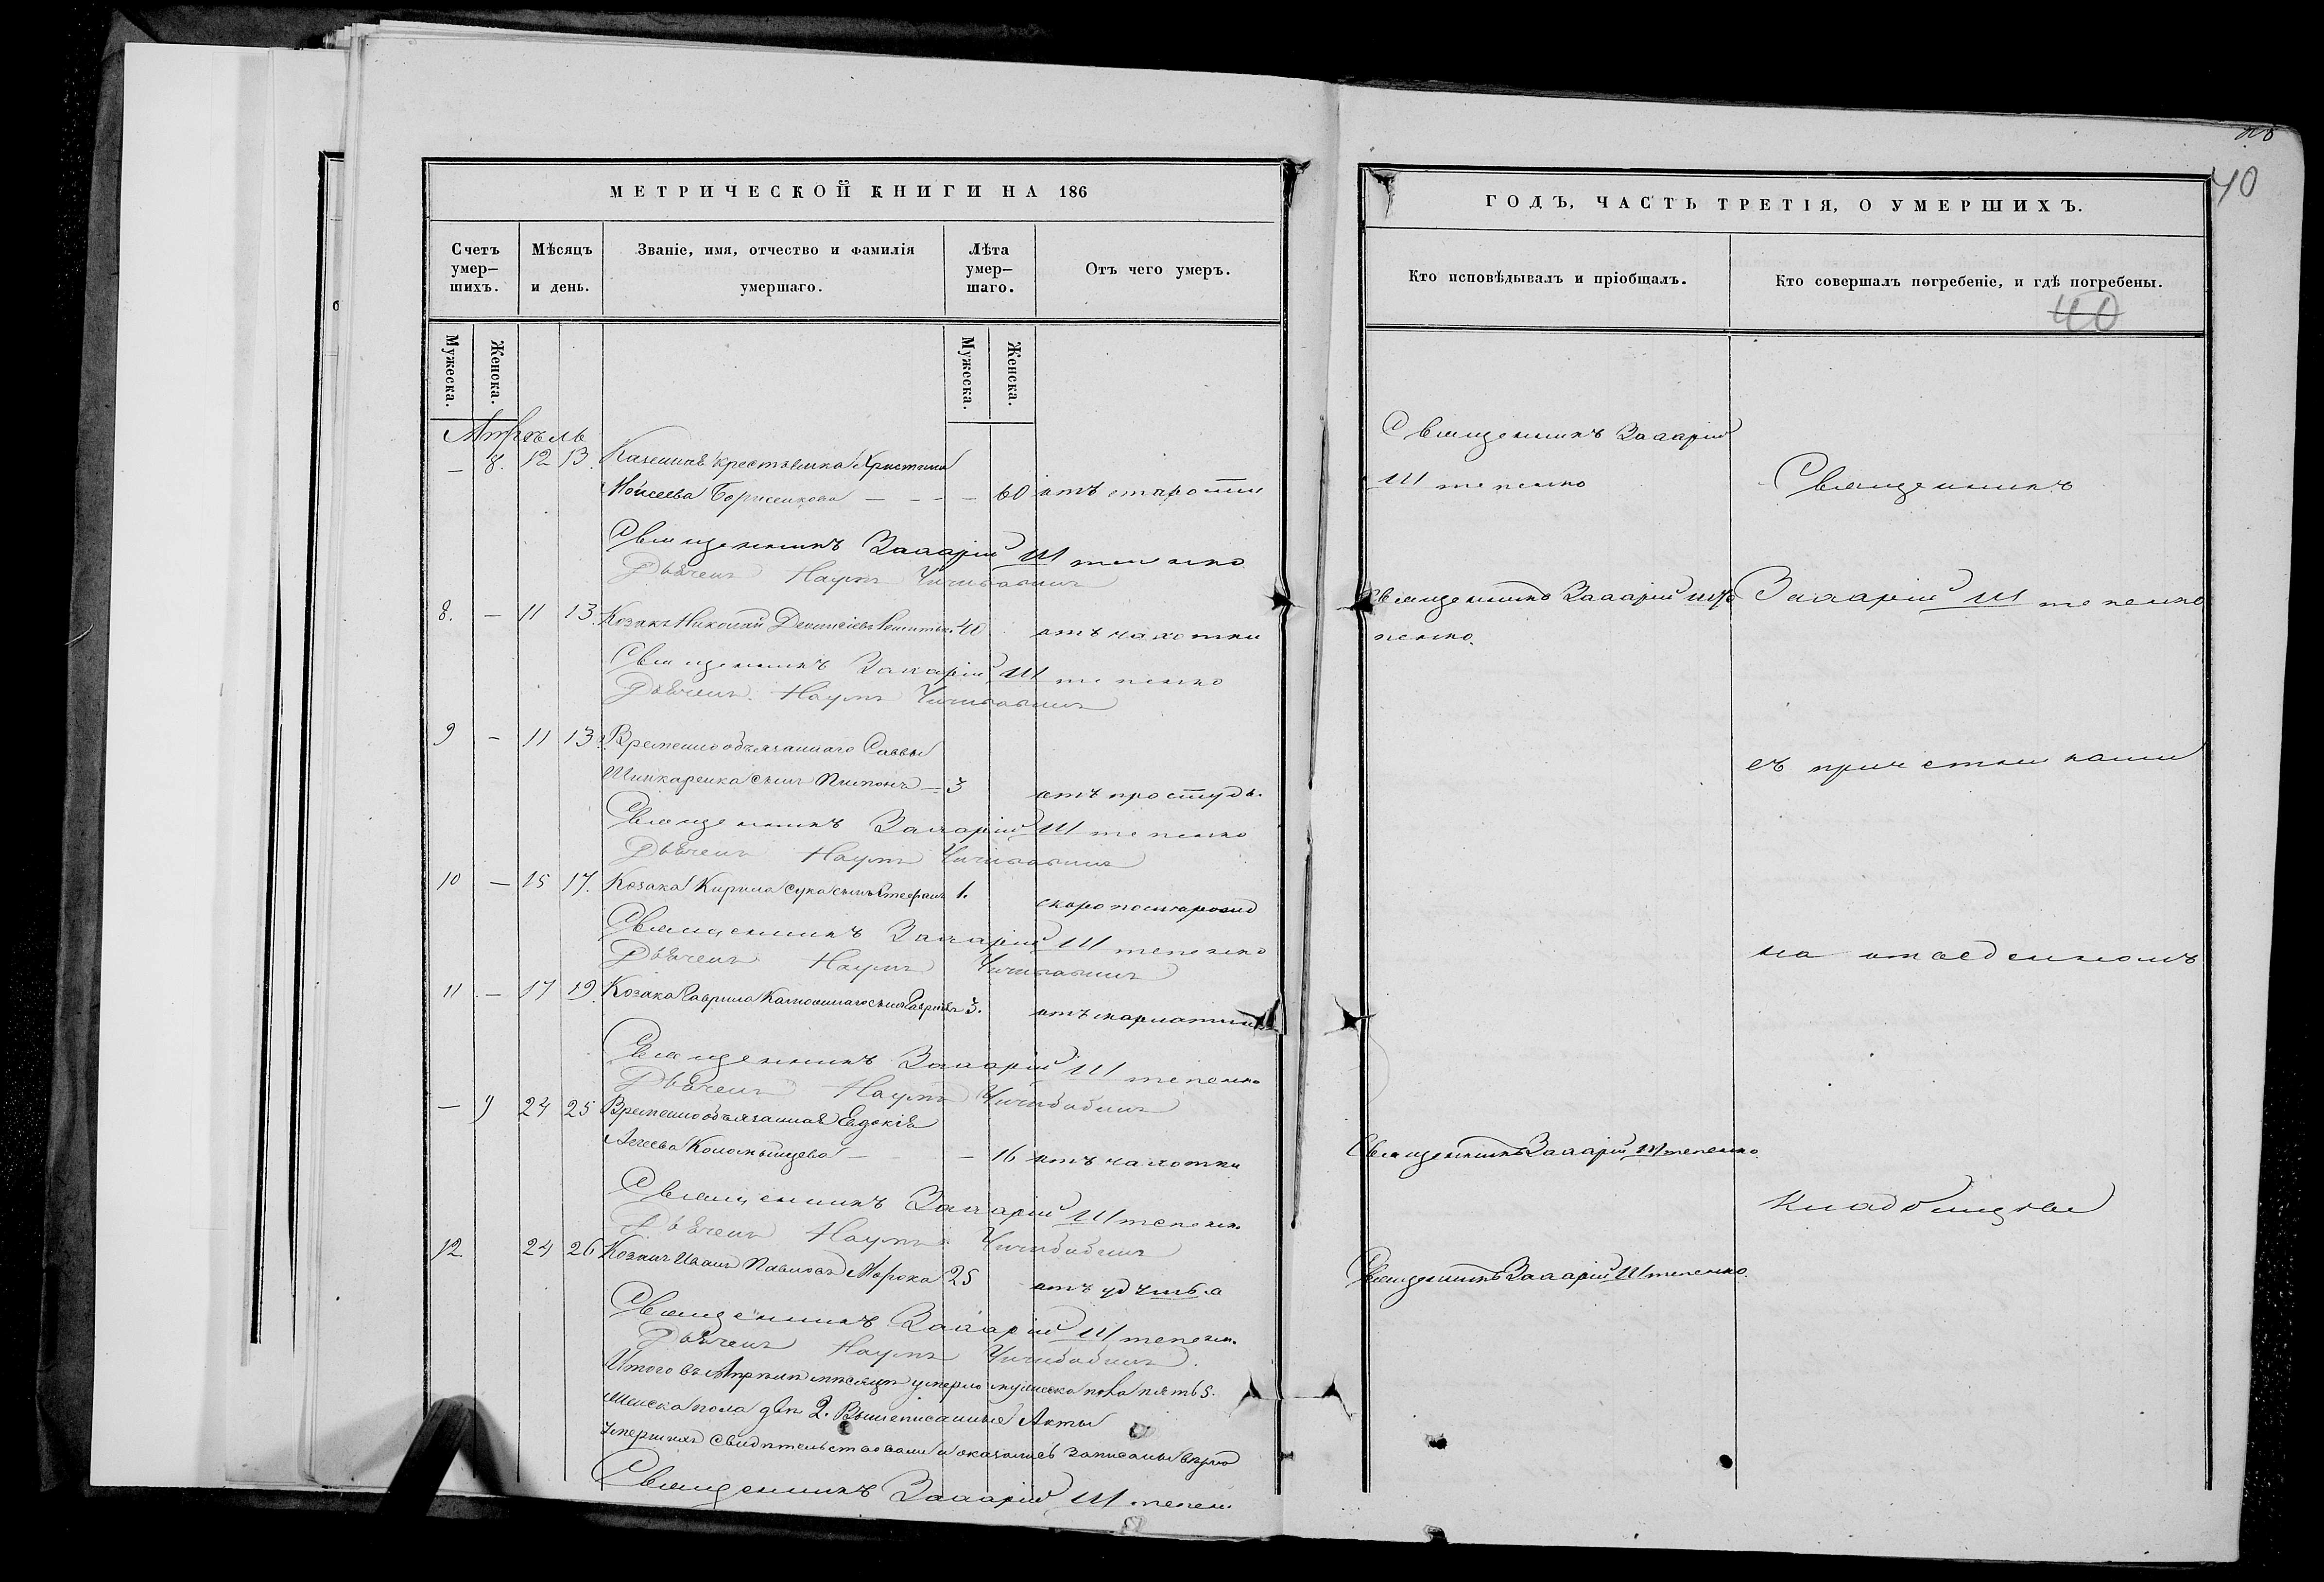 МЕТРИЧЕСКОЙ КНИГИ НА 186
Счетъ умер-шихъ.
Мѣсяцъ и день.
Званіе, имя, отчество и фамилія умершаго.
Лѣта умер-шаго.
Отъ чего умеръ.
Мужеска.
Женска.
Мужеска.
Женска.
Апрѣль
— 8. 12 13. Казенная крестьянка Христина
Моисеева Борисенкова — — — — 60 отъ старости
Священникъ Захарій Штепенко
Дьячекъ Наумъ Чичибабинъ
8. — 11 13. Козакъ Николай Деонисіевъ 40 отъ чахотки
Священникъ Захарій Штепенко
Дьячекъ Наумъ Чичибабинъ
9 — 11 13. Временнообязаннаго Саввы
Шинкаренка сынъ — 3 отъ простуды.
Священникъ Захарій Штепенко
Дьячекъ Наумъ Чичибабинъ
10 — 15 17. Козака Кирила сынъ Стефанъ 1.
Священникъ Захарій Штепенко
Дьячекъ Наумъ Чичибабинъ
11 — 17 19. Козака Гаврила сынъ 3. отъ скарлатины
Священникъ Захарій Штепенко
Дьячекъ Наумъ Чичибабинъ
— 9 24 25 Временнообязанная Евдокія
Коломыйцева — — 16 отъ чахотки
Священникъ Захарій Штепенко
Дьячекъ Наумъ Чичибабинъ
12. 24 26 Козакъ Иванъ Павловъ Морока 25 отъ
Священникъ Захарій Штепенко
Дьячекъ Наумъ Чичибабинъ.
Итого въ Апрѣлѣ мѣсяцѣ умерло мужеска пола пять 5.
женска пола двѣ 2. Вышеписанные Акты
умершихъ свидѣтельствовали и оказались записаны вѣрно
Священникъ Захарій Штепенко
40
ГОДЪ, ЧАСТЬ ТРЕТІЯ, О УМЕРШИХЪ.
Кто исповѣдывалъ и пріобщалъ.
Кто совершалъ погребеніе, и гдѣ погребены.
40
Священникъ Захарій
Штепенко
Священникъ
Священникъ Захарій Ште
пенко.
Захарій Штепенко
съ причетники
на отведенномъ
Священникъ Захарій Штепенко.
кладбищѣ
Священникъ Захарій Штепенко.